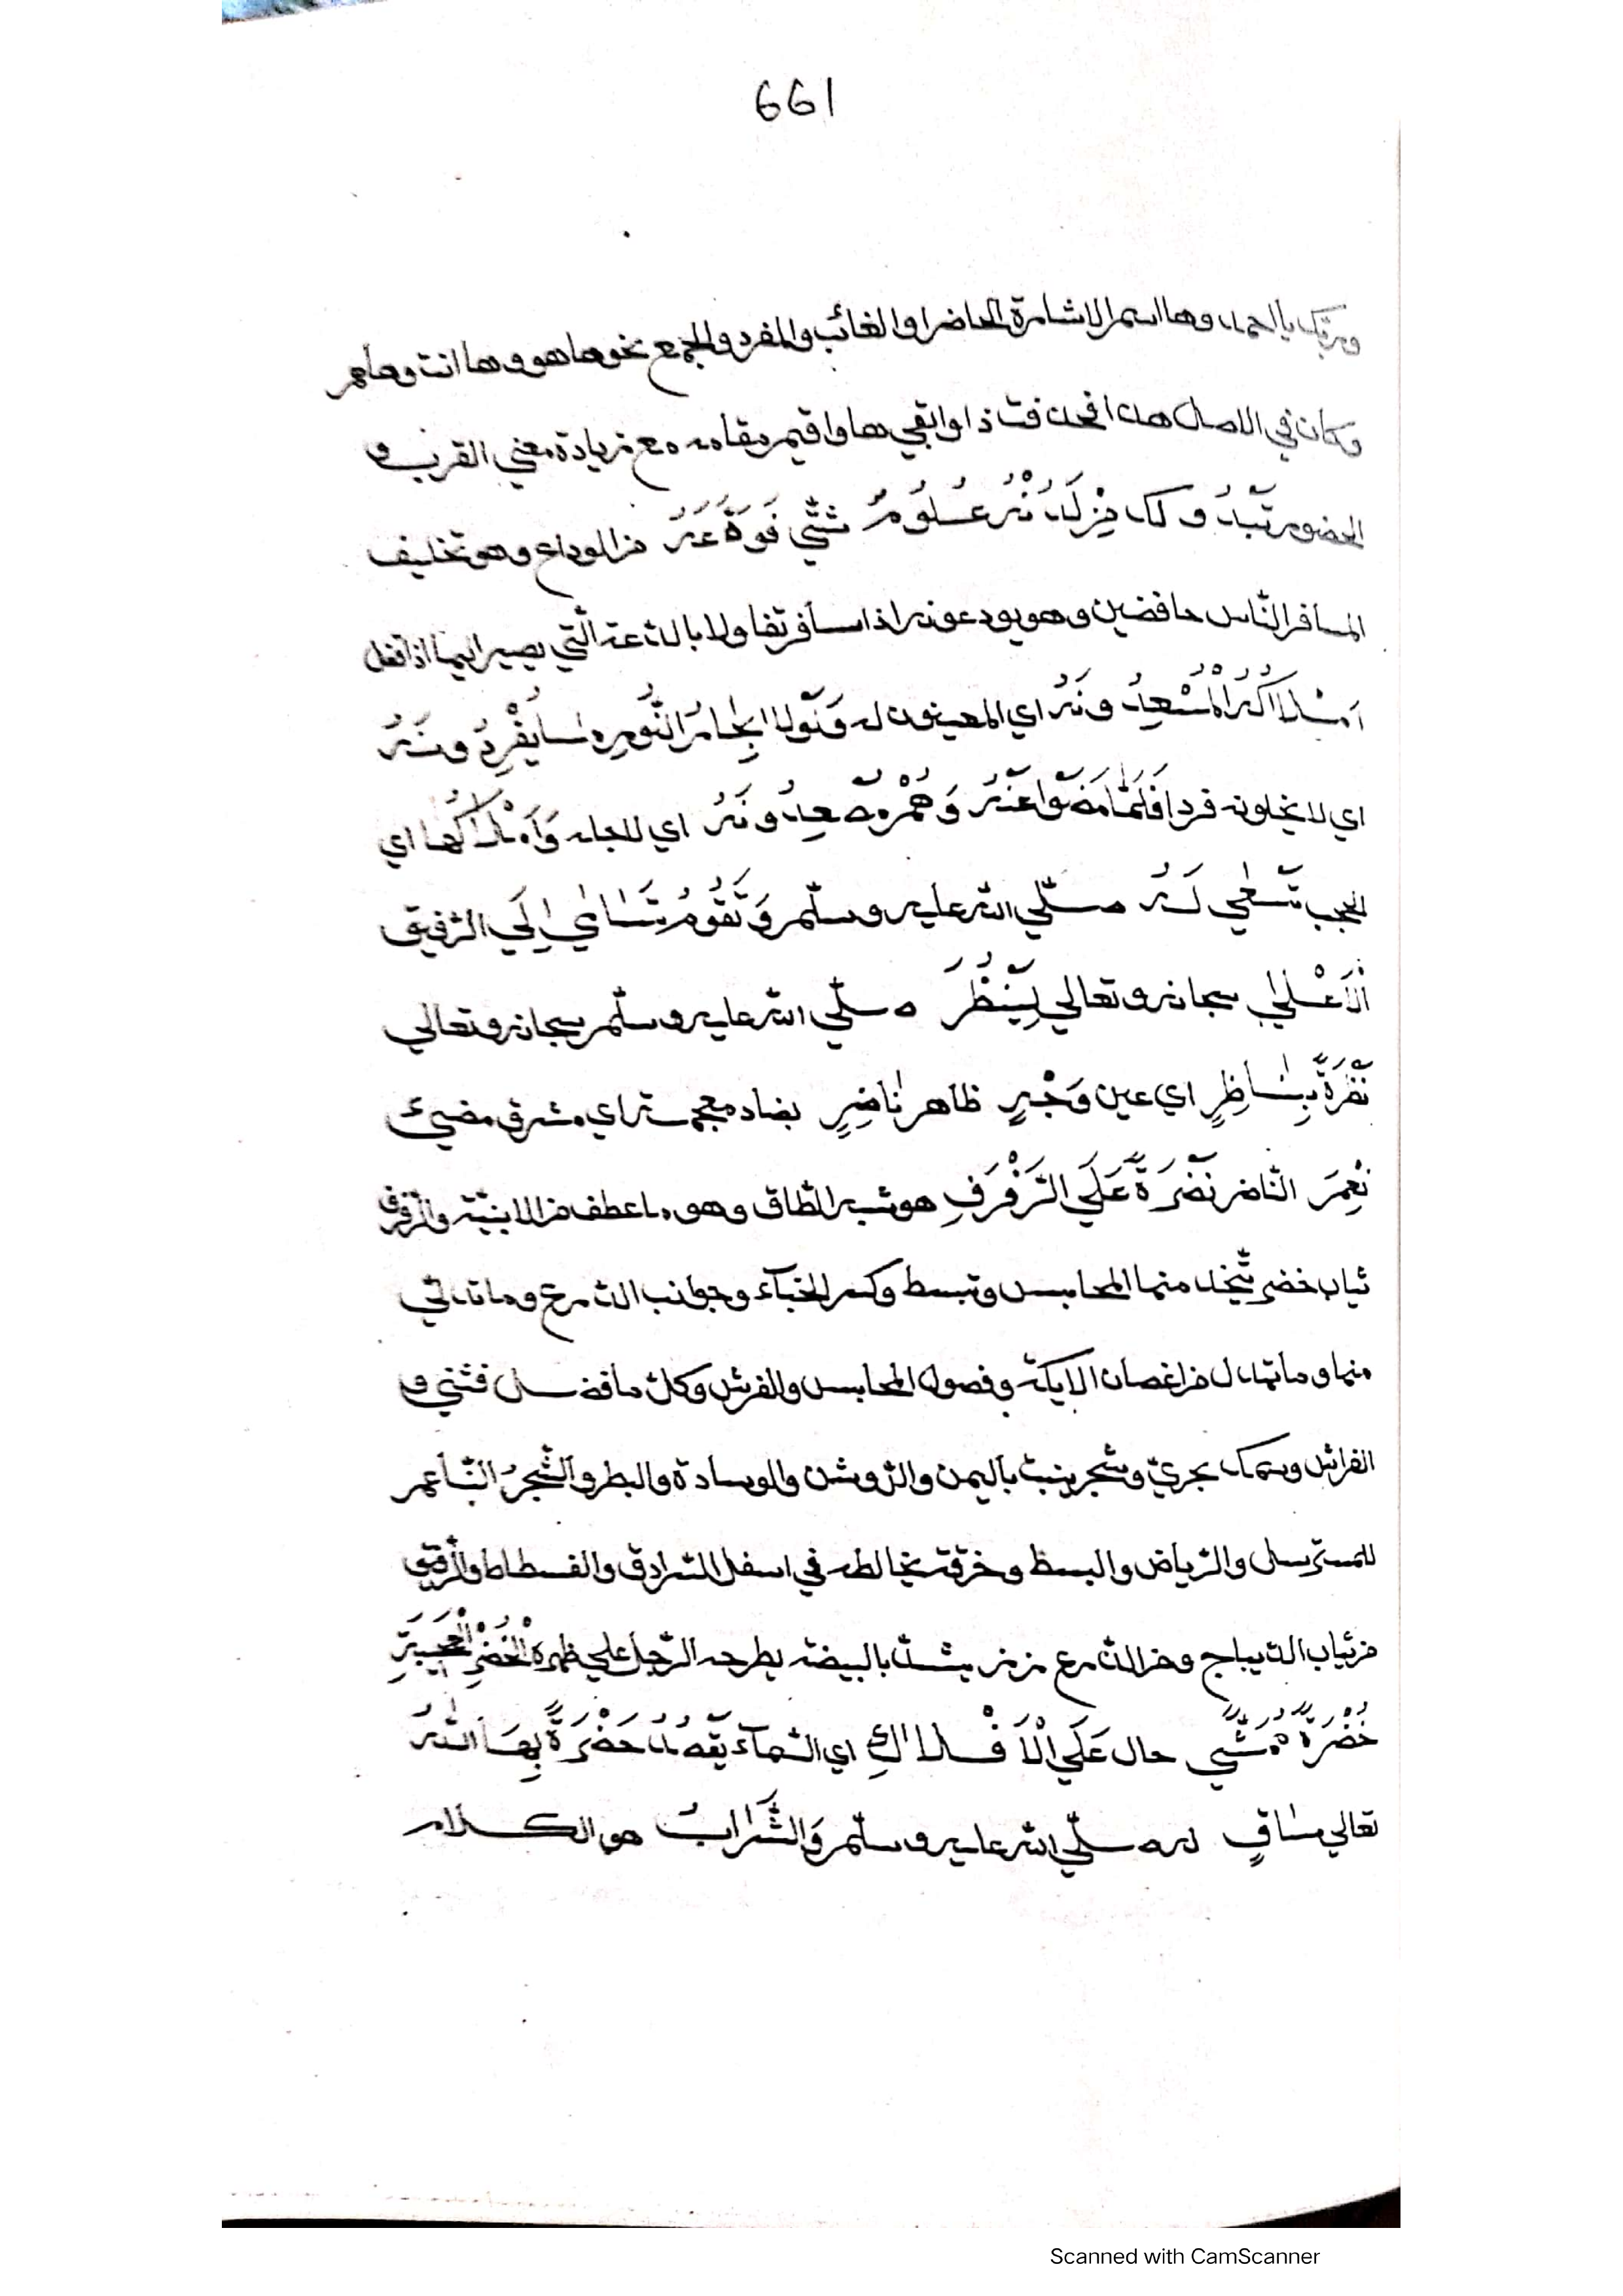 661
وربّك يا احمد وها اسم الاشارة الحاضر او الغائب والمفرد والجمع نحو ها هو وها انت وها هم
وكان في الاصل هذا فحذفت ذا وابقي ها واقيم مقامه مع زيادة معني القرب و
الحضور من الوداع وهو تخليف
المسافر الناس حافضين وهو يودعونه اذا سافر تفاولا بالدعة الّتي يصير اليها اذا قفل
اي المعينون له
اي لا يخلونه فردا فَلَمَّا مَضَوْا عَنْهُ وَهُمْ اي لاجله وَأَمْلَاكُهَا اي
الحجب تَسْعَي لَهُ صلّي الله عليه وسلّم وَتَقُومُ إِلَي الرّفيق
الْأَعْلَي سبحانه وتعالي لِيَنْظُرَ صلّي الله عليه وسلّم سبحانه وتعالي
نَظْرَةً بِنَاظِرٍ اي عين وَجْهٍ ظاهر نَاضِرٍ بضاد معجمة اي مشرق مضيئ
نَعِمَ النّاضر نَضْرَةً عَلَي الرَّفْرَفِ هو شبه الطّاق وهو ما عطف من الابنيّة والرّفرف
ثياب خضر تتّخذ منها المحابس وتبسط وكسر الخباء وجوانب الدّرع وما تدلّي
منها وما تهدّل من اغصان الايكة وفضول المحابس والفرش وكلّ ما فضل فثني و
الفراش وسمك بحريّ وشجر ينبت باليمن والرّوشن والوسادة والبظر والشّجر النّاعم
المسترسل والرّياض والبسط وخرقة يخالطه في اسفل السّرادق والفسطاط والرّقيق
من ثياب الدّيباج ومن الدّرع زرد يشدّ بالبيضة يطرحه الرّجل علي ظهره الْخُضْرِ
خُضْرَةً حال عَلَي الْأَفْلَاكِ اي السّماء يَقْصُدُ حَضْرَةً بِهَا اللّهُ
تعالي سَاقٍ له صلّي الله عليه وسلّم وَالشَّرَابُ هو الكلام
Scanned with CamScanner